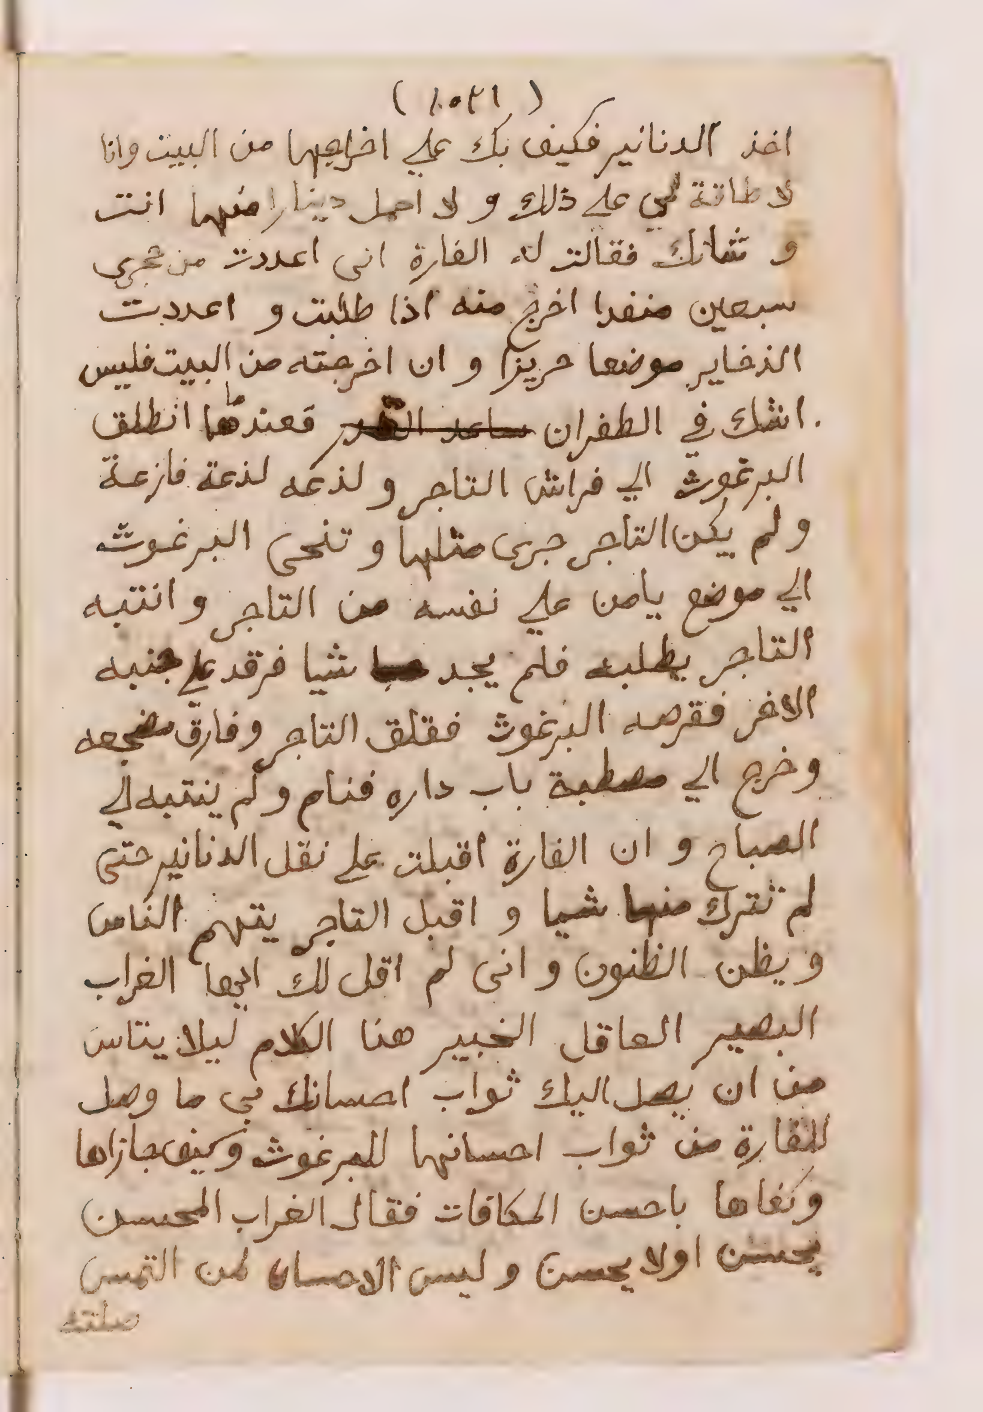 (١٠٢١)
اخذ الدنانير فكيف بك علي اخراجها من البيت وانا
لا طاقة لي علي ذلك و لا احمل دينارا منها انت
و شانك فقالت له الفارة اني اعددت من حجري
سبعين منفدا اخرج منه اذا طلبت و اعددت
الذخاير موضعا حريزا و ان اخرجته من البيت فليس
اشك في الظفران ساعد القدر فعندها انطلق
البرغوث الي فراش التاجر و لذعه لذعة فازعة
و لم يكن التاجر جرى مثلها و تنحى البرغوث
الي موضع يامن علي نفسه من التاجر و انتبه
التاجر يطلبه فلم يجد شيا فرقد علي جنبه
الاخر فقرصه البرغوث فقلق التاجر و فارق مضجعه
و خرج الي مصطبة باب داره فنام و لم ينتبه الي
الصباح و ان الفارة اقبلت علي نقل الدنانير حتى
لم تترك منها شيا و اقبل التاجر يتهم الناس
و يظن الظنون و انى لم اقل لك ايها الغراب
البصير العاقل الخبير هذا الكلام ليلا يتاس
من ان يصل اليك ثواب احسانك بي ما وصل
للفارة من ثواب احسانها للبرغوث و كيف جازاها
و كفاها باحسن المكافات فقال الغراب المحسن
يحسن اولا يحسن و ليس الاحسان لمن التمس